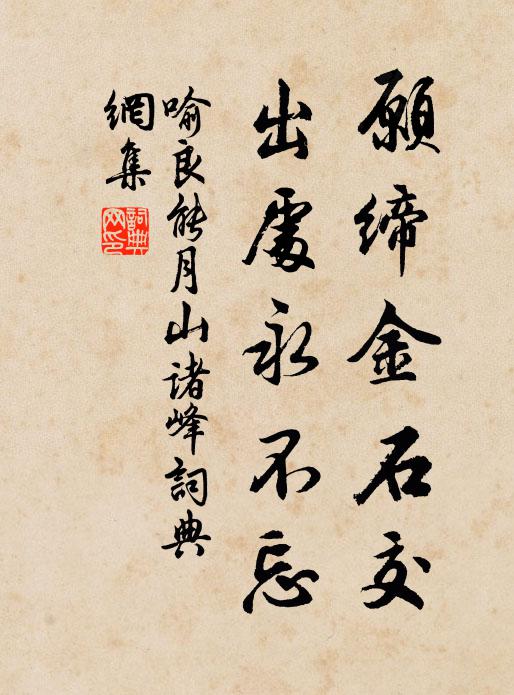 願締金石交
出處永不忘
喻良能月山諸峰詞典
網集
詞典
网印